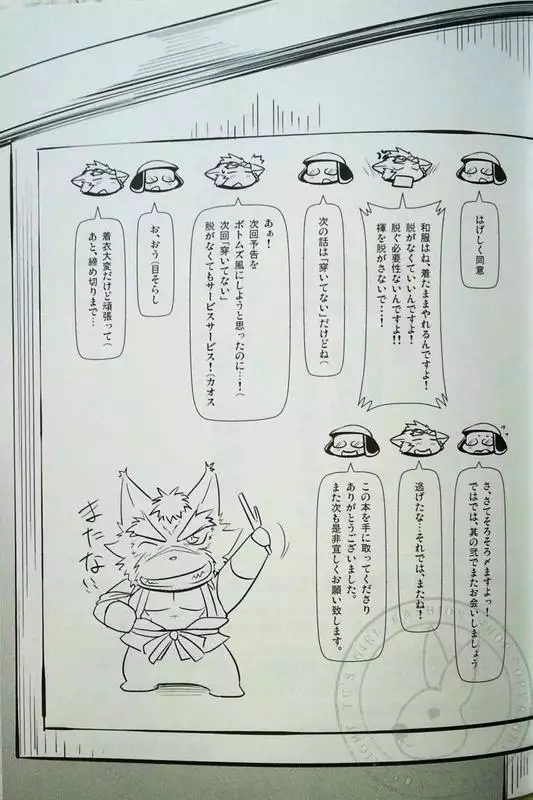 はげしく同意
和服はね、着たままやれるんですよ！
脱がなくていいんですよ！
脱ぐ必要性ないんですよ!!
褌を脱がさないで…！
次の話は「穿いてない」だけどね（
あぁ！
次回予告を
ボトムズ風にしようと思ったのに…！（
次回「穿いてない」
脱がなくてもサービスサービス！（カオス
お、おう（目そらし
着衣大変だけど頑張って（
あと、締め切りまで…
さ、さてそろそろ〆ますよっ！
ではでは、其の弐でまたお会いしましょう
逃げたな…それでは、またね！
この本を手に取ってくださり
ありがとうございました。
また次も是非宜しくお願い致します。
またない